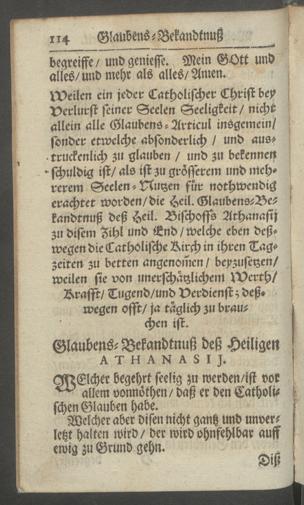 114 Glaubens-Bekandtnuß
begreiffe / und geniesse. Mein GOtt und
alles / und mehr als alles / Amen.
Weilen ein jeder Catholischer Christ bey
Verlurst seiner Seelen Seeligkeit / nicht
allein alle Glaubens-Articul insgemein /
sonder etwelche absonderlich / und aus-
truckenlich zu glauben / und zu bekennen
schuldig ist / als ist zu grösserem und meh-
rerem Seelen-Nutzen für nothwendig
erachtet worden / die Heil. Glaubens-Be-
kandtnuß deß Heil. Bischoffs Athanasij
zu disem Zihl und End / welche eben deß-
wegen die Catholische Kirch in ihren Tag-
zeiten zu betten angenom̃en / beyzusetzen /
weilen sie von unerschätzlichem Werth /
Krafft / Tugend / und Verdienst; deß-
wegen offt / ja täglich zu brau-
chen ist.
Glaubens-Bekandtnuß deß Heiligen
ATHANASIJ.
WElcher begehrt seelig zu werden / ist vor
allem vonnöthen / daß er den Catholi-
schen Glauben habe.
Welcher aber disen nicht gantz und unver-
letzt halten wird / der wird ohnfehlbar auff
ewig zu Grund gehn.
Diß